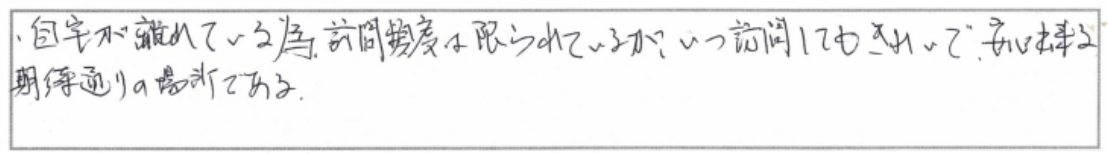 ・自宅が離れている為、訪問頻度は限られているが、いつ訪問してもきれいで、安心出来る
期待通りの場所である。